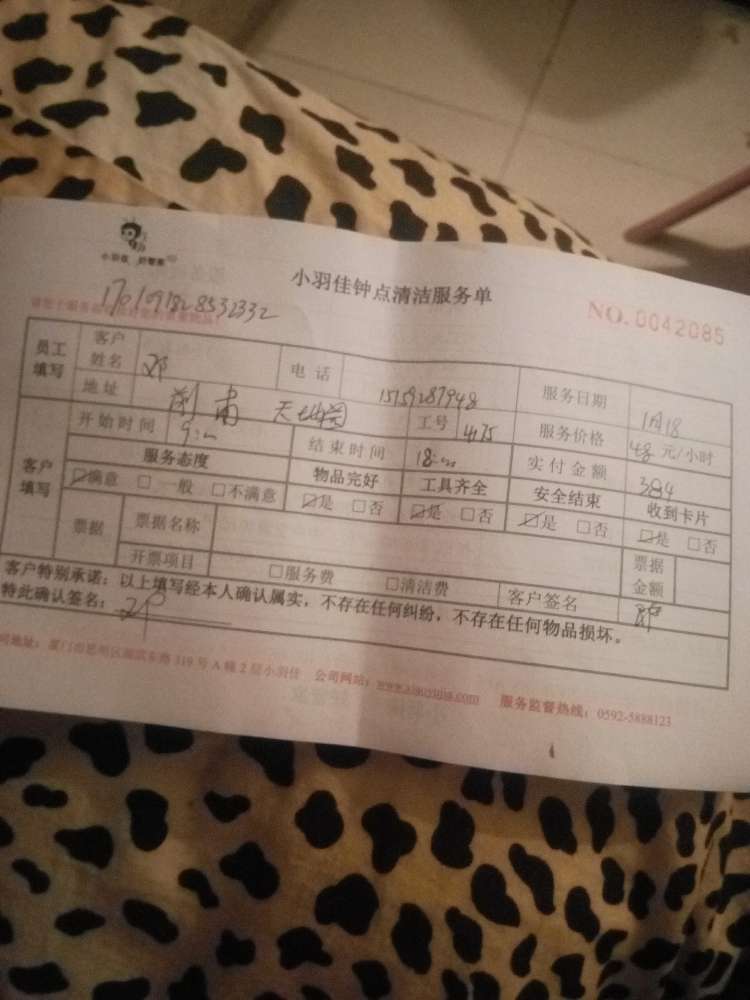 小羽佳 好管家
小羽佳钟点清洁服务单
NO.0042085
1701091828532332
员工填写 客户姓名 邓 电话 15159287948 服务日期 1月18
地址 前甫 工号 4175 服务价格 48元/小时
客户填写 开始时间 9:00 结束时间 18:00 实付金额 384
服务态度 物品完好 工具齐全 安全结束 收到卡片
☑满意 □一般 □不满意 ☑是 □否 ☑是 □否 ☑是 □否 ☑是 □否
票据 票据名称 票据金额
开票项目 □服务费 □清洁费 客户签名 邓
客户特别承诺：以上填写经本人确认属实，不存在任何纠纷，不存在任何物品损坏。
特此确认签名：邓
司地址：厦门市思明区湖滨东路319号A幢2层小羽佳 公司网站：www.xiaoyujia.com 服务监督热线：0592-5888123